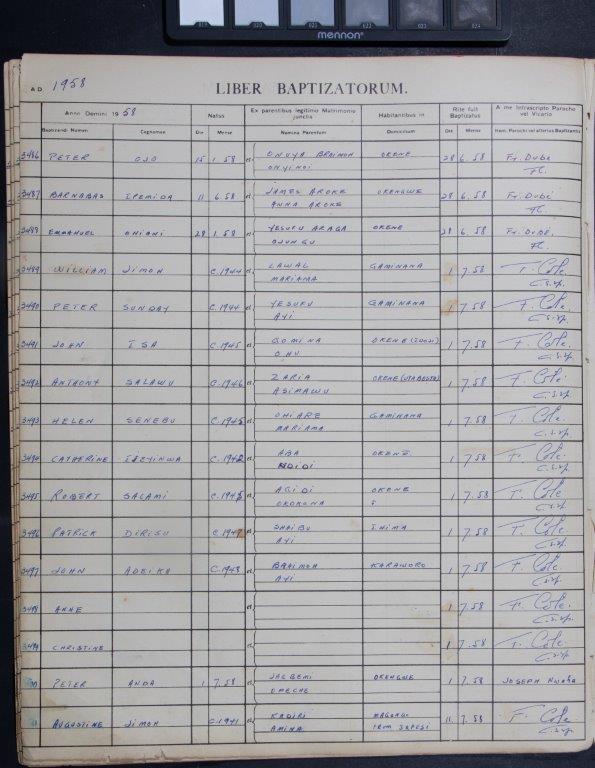 mennon
A.D. 1958
LIBER BAPTIZATORUM.
Anno Domini 1958
Natus
Ex parentibus legitimo Matrimonio junctis
Habitantibus in
Rite fuit Baptizatus
A me Infrascripto Parocho vel Vicario
Baptizandi Nomen
Cognomen
Die
Mense
Nomina Parentum
Domicilium
Die
Mense
3486 PETER OJO 15 1.58 et ONUYA BRAIMOH OKENE 28 6.58 Fr. Dubé
ONYINOI
3487 BARNABAS IPEMIDA 11 6.58 et JAMES AROKE OKENGWE 28 6.58 Fr. Dubé
ANNA AROKE
EMMANUEL OHIANI 28 1.58 et YESUFU ARAGA OKENE 28 6.58 Fr. Dubé
OJUNGU
3489 WILLIAM JIMOH C.1944 et LAWAL GAMINANA 1 7.58 F. Cole
MARIAMA C.S.Sp.
3490 PETER SUNDAY C.1944 et YESUFU GAMINANA 1 7.58 F. Cole
AYI C.S.Sp.
3491 JOHN ISA C.1945 et GOMINA OKENE 1 7.58 F. Cole
OHU C.S.Sp.
3492 ANTHONY SALAWU C.1946 et ZARIA OKENE 1 7.58 F. Cole
ASIMAWU C.S.Sp.
3493 HELEN SENEBU C.1945 et OHIARE GAMINANA 1 7.58 F. Cole
MARIAMA C.S.Sp.
3494 CATHERINE C.1942 et ABA OKENE 1 7.58 F. Cole
NDIDI C.S.Sp.
3495 ROBERT SALAMI et AGIDI OKENE 1 7.58 F. Cole
OKOKONA C.S.Sp.
3496 PATRICK DIRISU C.1947 et SHAIBU IHIMA 1 7.58 F. Cole
AYI C.S.Sp.
3497 JOHN ADEIKU C.1943 et BRAIMOH KARAWORO 1 7.58 F. Cole
AYI C.S.Sp.
3498 ANNE et 1 7.58 F. Cole
C.S.Sp.
3499 CHRISTINE et 1 7.58 F. Cole
C.S.Sp.
PETER ANDA 1 7.58 et JAGBEMI OKENGWE 1 7.58 JOSEPH Nwaha
OMECHE
AUGUSTINE JIMOH C.1941 et KADIRI 11 7.58 F. Cole
AMINA C.S.Sp.